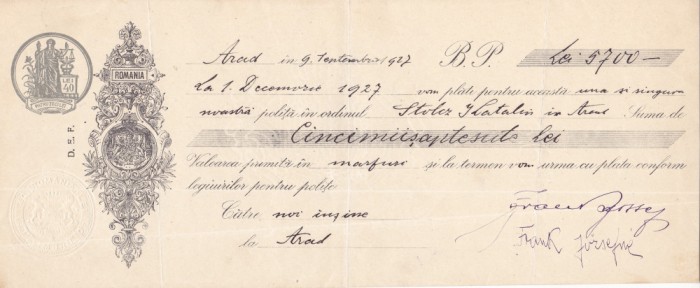 LEI 40
ROMANIA
D. E. F.
Arad in 9. Septembrie 1927 B. P. Lei 5700—
La 1. Decemvrie 1927 vom plăti pentru aceasta una și singura
noastră poliță în ordinul Stolcz Katalin in Arad Suma de
Cincimiișaptesute lei
Valoarea primită în marfuri și la termen vom urma cu plata conform
legiuirilor pentru polițe
Către noi inșine
la Arad
Frank József
Frank Józsefné